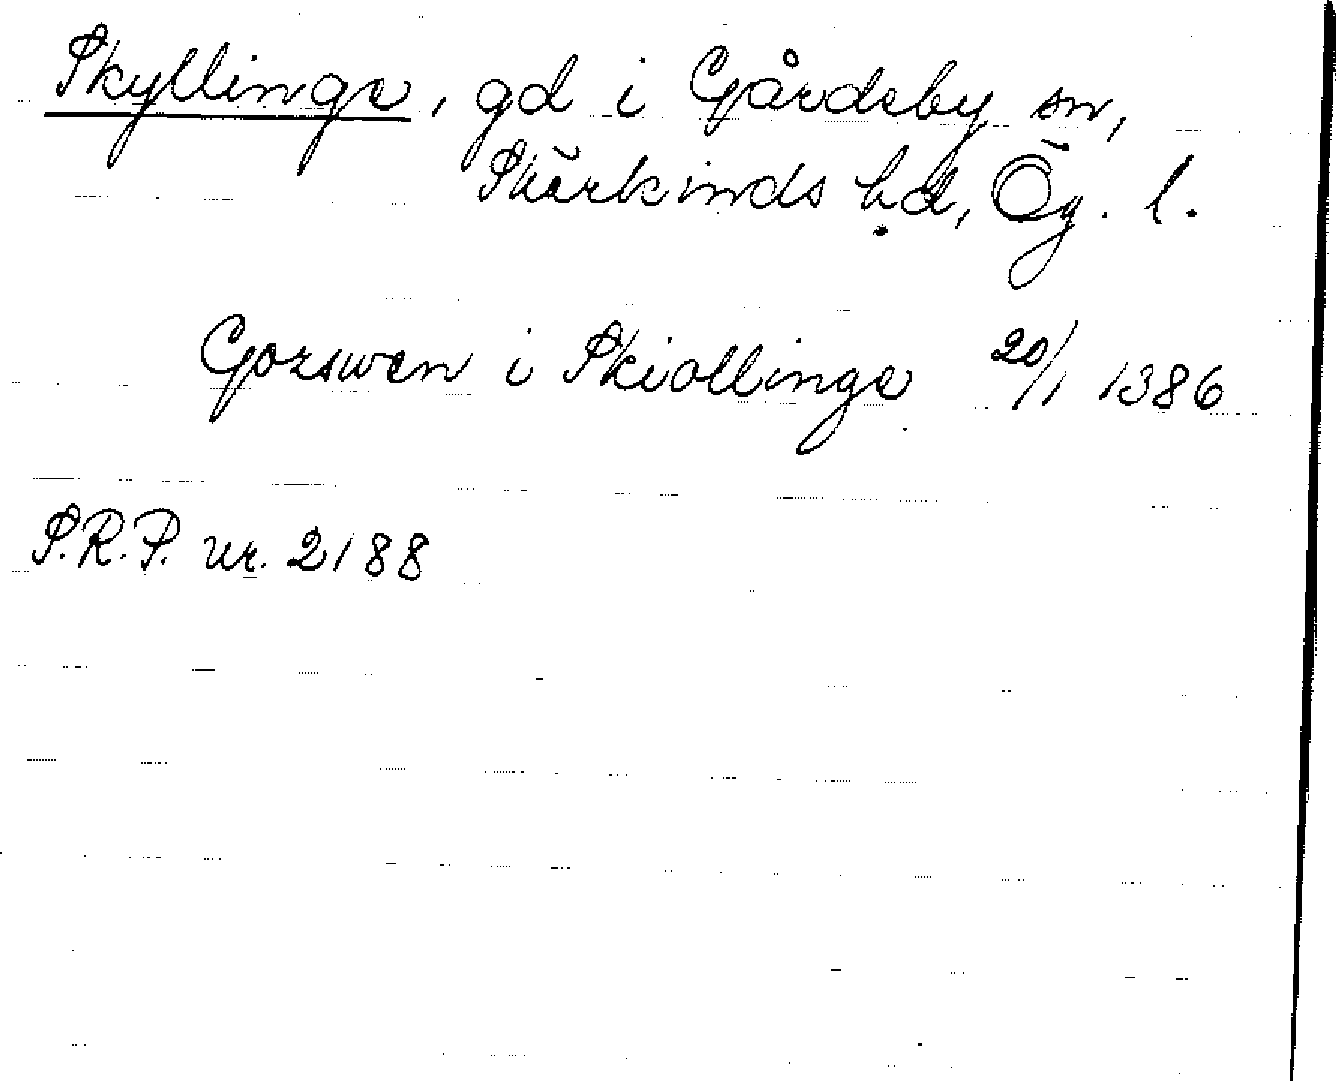 Skyllinge, gd i Gårdeby sn,
Skärkinds hd, Ög. l.
Gozswen i Skiollinge 20/1 1386
S.R.P. nr. 2188